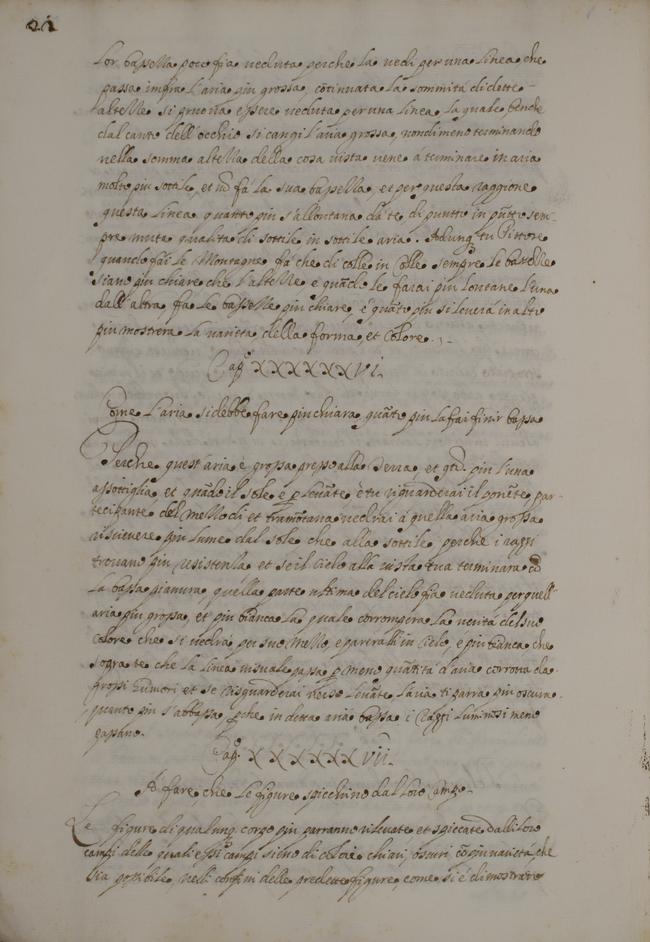 21
lor bassezza poco fia veduta perche la vedi per una linea che
passa infra l'aria piu grossa, cōtinuata la sommità di dette
altezze si pruova essere veduta per una linea la quale benche
dal canto dell'occhio si cangi l'aria grossa, nondimeno terminando
nella somma altezza della cosa vista viene á terminare in aria
molto piu sottile, et nō fá la sua bassezza, et per questa raggione
questa linea quanto piu s'allontana da te di puntto in pūtto sem-
pre muta qualita di sottile in sottile aria. Adunq. tu Pittore
quando fai le Montagne fá che di colle in colle sempre le bassezze
siano piu chiare che l'altezze e quādo le farai piu lontane l'una
dall'altra, fa le bassezze piu chiare, é quāto piu si leverá in alto
piu mostrera la varieta della forma, et colore.
Cap.º XXXXXXVI.
Come l'aria si debbe fare piu chiara, quāto piu la fai finir bassa
Perche quest'aria é grossa presso alla terra, et qto. piu l'una
assottiglia, et quādo il sole é p Levāte é tu riguarderai il ponēte par-
tecipante del mezzo di et tramōtana vedrai á quella aria grossa
ricevere piu lume dal sole che alla sottile perche i razzi
trovano piu resistenza et se il cielo alla vista tua terminara cō
la bassa pianura, quella parte ultima del cielo fia veduta per quell'
aria piu grossa, et piu bianca la quale corrompera la veritá del suo
colore che si vedra per suo mezzo, e parera lì il cielo, e piu bianca che
sopra te che la linea visuale passa p meno quātitá d'aria corrotta da
grossi humori et se risguarderai verso Levāte l'aria ti parra piu oscura
quanto piu s'abbassa, pche in detta aria bassa i razzi luminosi meno
passano.
Cap.º XXXXXXVII.
A fare, che le figure spicchino dal loro campo.
Le figure di qualunq. corpo piu parranno rilevate et spiccate dalli loro
campi delle quali essi campi sieno di colori chiari, oscuri, cō piu varietá che
sia possibile, nelli confini delle predette figure, come si é dimostrato